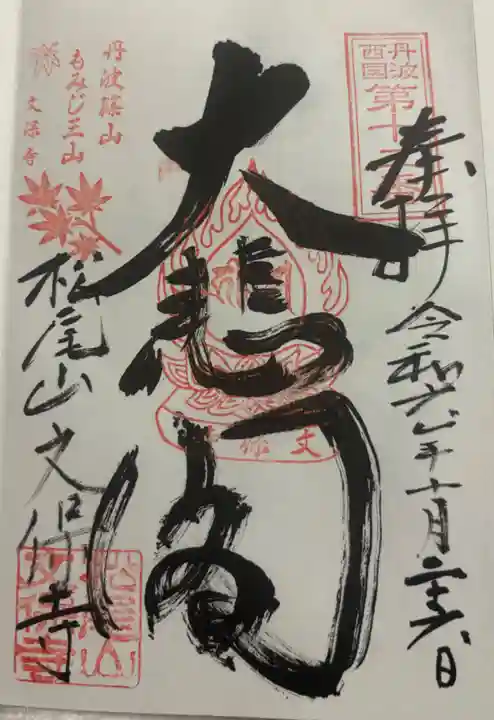 丹波
西国
第十
奉拝
令和六年十月二十六日
大悲閣
丹波篠山
もみじ三山
文保寺
松尾山文保寺